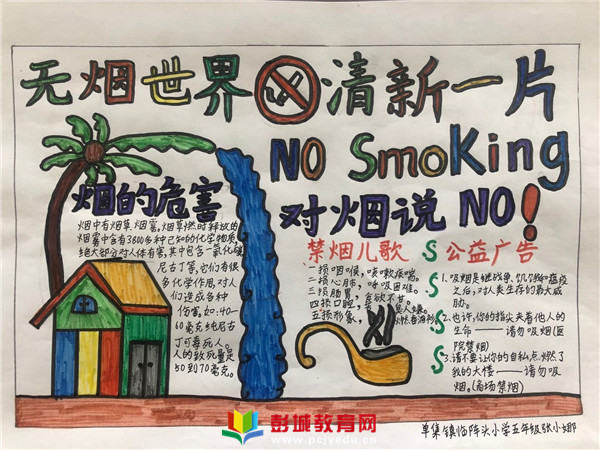 无烟世界 清新一片
NO SmoKing
烟的危害
对烟说 NO!
烟中有烟草烟雾,烟草燃时释放的
烟雾中含有3800多种已知的化学物质,
绝大部分对人体有害,其中包含一氧化碳、
尼古丁等,它们有很
多化学作用,对人
们造成各种
伤害,如:40—
60毫克纯尼古
丁可毒死人。
人的致死量是
50到70毫克。
禁烟儿歌
一损咽喉,咳嗽疾喘。
二损心肺,呼吸困难。
三损肠胃,食欲不甘。
四损口腔,
五损形象,
公益广告
1、吸烟是继战争、饥饿和瘟疫
之后,对人类生存的最大威
胁。
2、也许,你的指尖夹着他人的
生命——请勿吸烟(医
院禁烟)
3、请不要让你的自私点燃了
我的大楼——请勿吸
烟。(商场禁烟)
彭城教育网
www.pcjyedu.cn
单集镇临阵头小学五年级张小娜